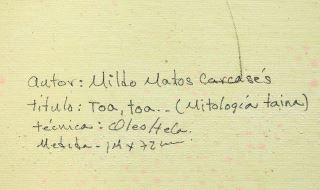 Autor: Mildo Matos Carcasés
título: Toa, toa.. (Mitología taina)
técnica: Oleo/tela.
Medida - 1M x 72